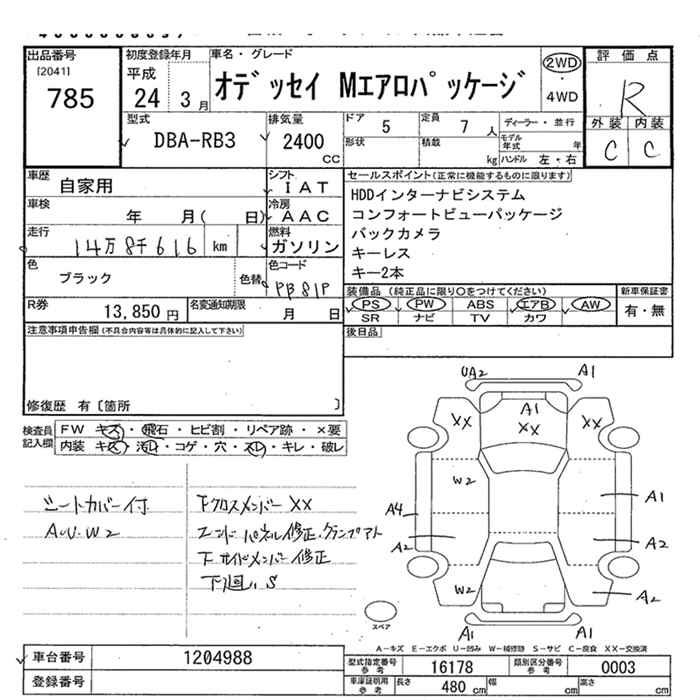 出品番号
[2041]
785
初度登録年月
平成
24 3月
車名・グレード
オデッセイ Mエアロパッケージ
2WD
4WD
評価点
R
外装 内装
C C
型式
DBA-RB3
排気量
2400
CC
ドア
5
定員
7 人
ディーラー・並行
形状
積載
kg
モデル年式
年
ハンドル 左・右
車歴
自家用
シフト
IAT
車検
年 月( 日)
冷房
AAC
走行
14万8千616 km
燃料
ガソリン
色
ブラック
色替
色コード
PB81P
R券
13,850 円
名変通知期限
月 日
セールスポイント(正常に機能するものに限ります)
HDDインターナビシステム
コンフォートビューパッケージ
バックカメラ
キーレス
キー2本
装備品 (純正品に限り○をつけてください)
新車保証書
PS PW ABS エアB AW
SR ナビ TV カワ
有・無
注意事項申告欄(不具合内容等は具体的に記入して下さい)
後日品
修復歴 有〔箇所 〕
検査員記入欄
FW キズ・飛石・ヒビ割・リペア跡・×要
内装 キズ・汚れ・コゲ・穴・スレ・キレ・破レ
シートカバー付
AU.W2
FクロスメンバーXX
エンドパネル修正・クランプアト
下サイドメンバー修正
下廻りS
UA2 A1
A1
XX XX XX
W2
A4 A1
A2 A2
W2 A2
A1 A1
スペア
A-キズ E-エクボ U-凹み W-補修跡 S-サビ C-腐食 XX-交換済
車台番号
1204988
登録番号
型式指定番号
参考
16178
類別区分番号
参考
0003
車庫証明用
参考
長さ
480 cm
幅
cm
高さ
cm